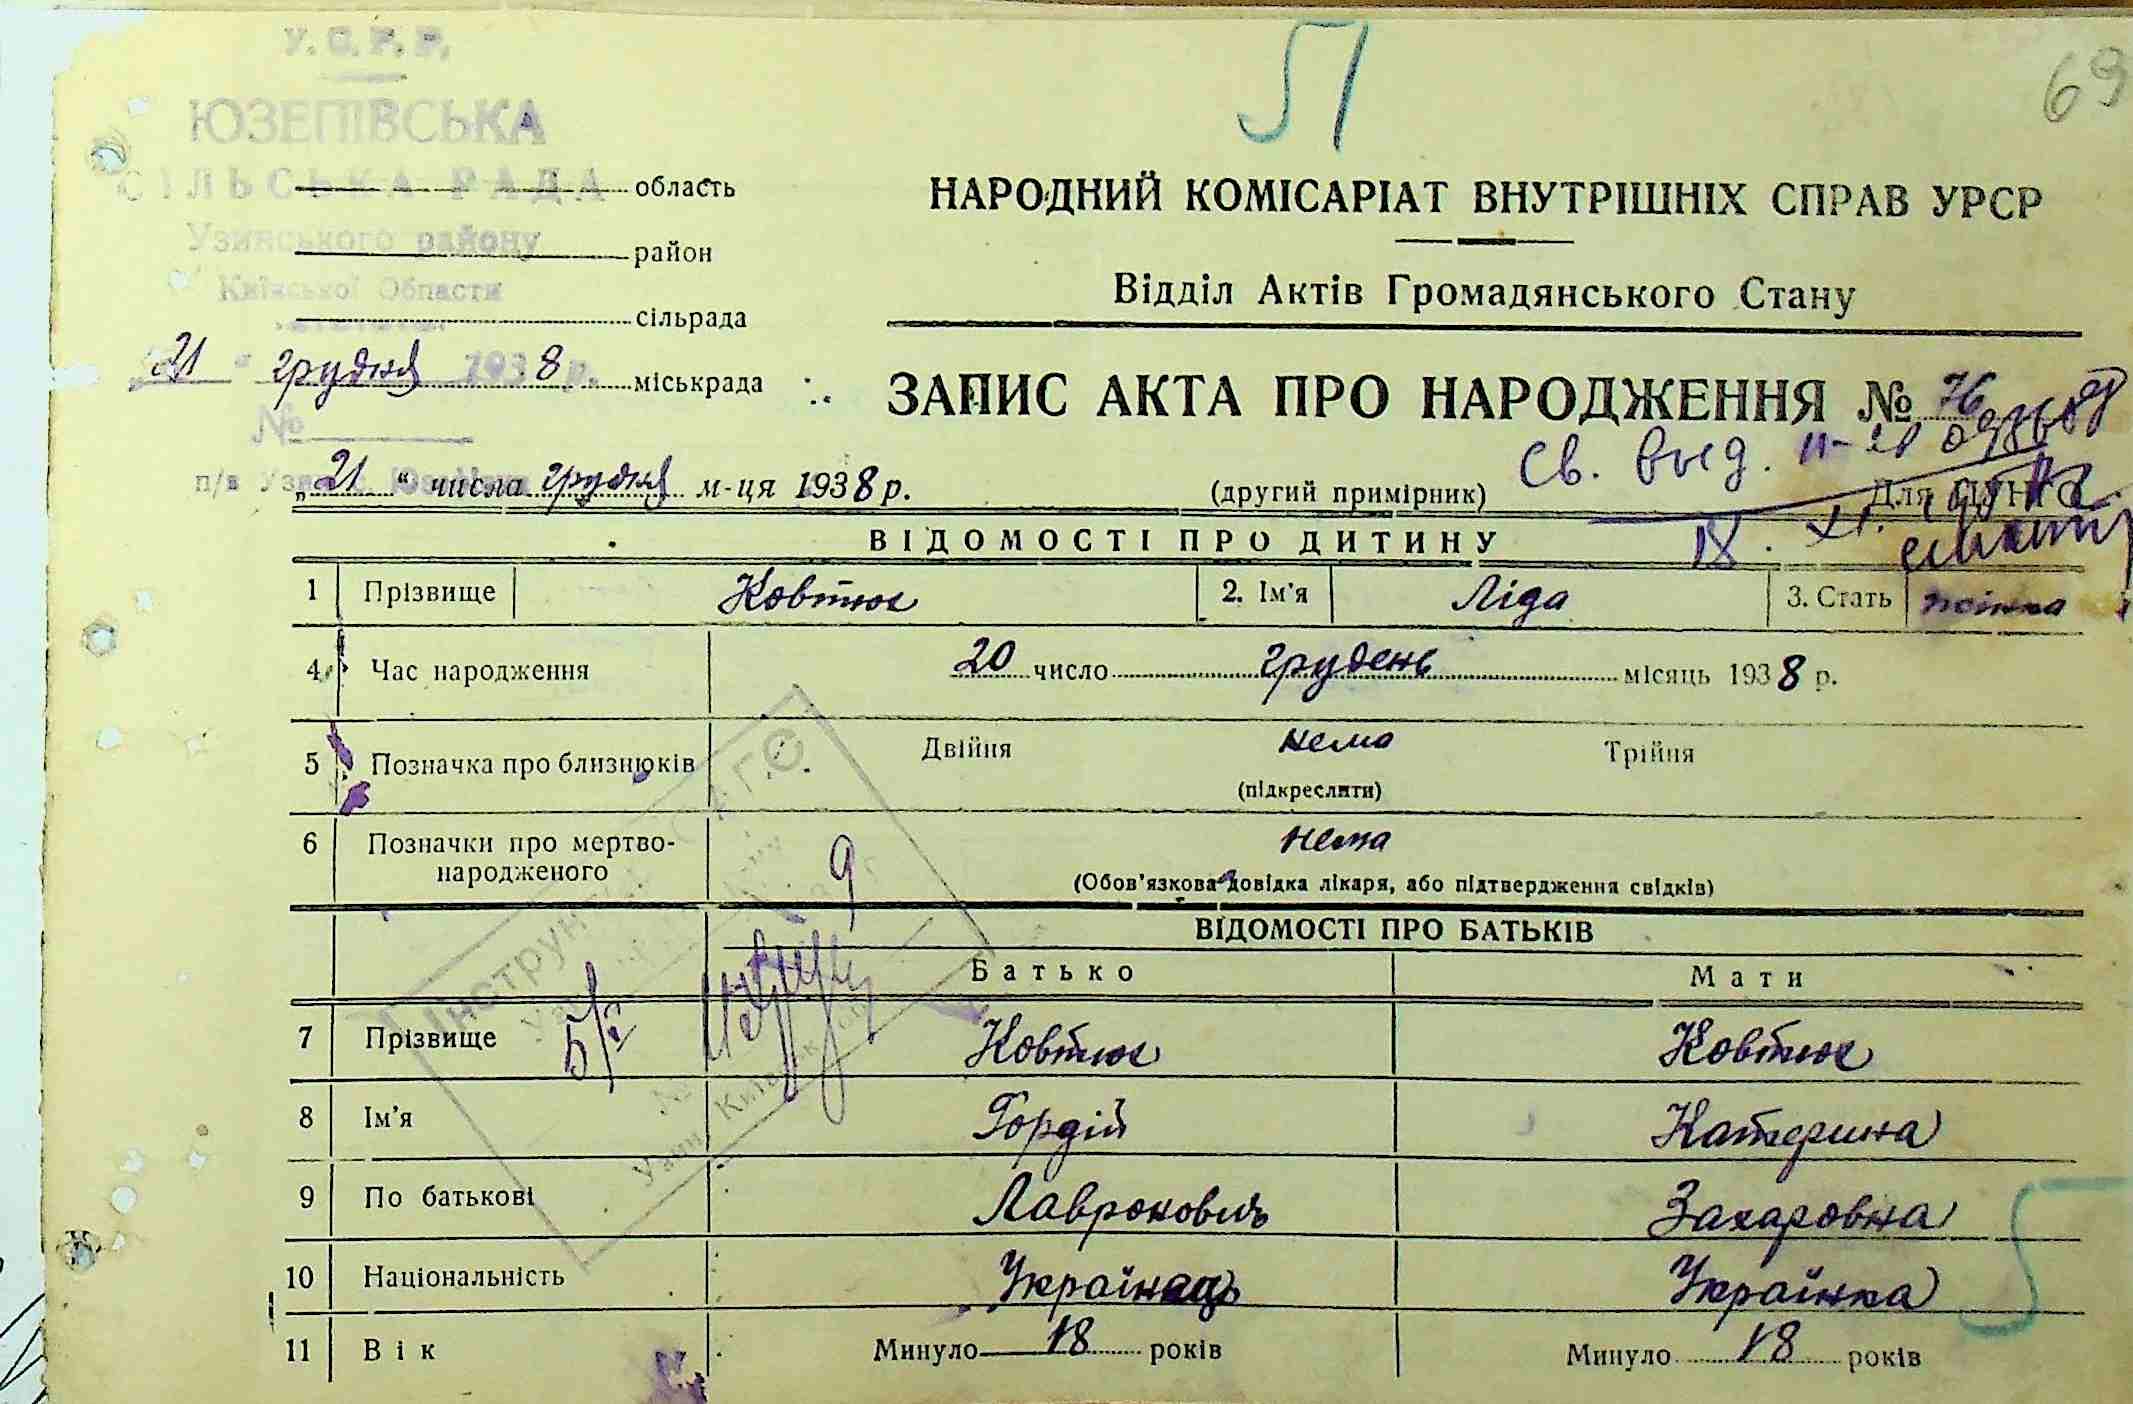 У.С.Р.Р.
ЮЗЕПІВСЬКА
СІЛЬСЬКА РАДА
Узинського району
Київської Области
область
район
сільрада
„21 “ грудня 1938 р. міськрада
№
51
69
НАРОДНИЙ КОМІСАРІАТ ВНУТРІШНІХ СПРАВ УРСР
Відділ Актів Громадянського Стану
ЗАПИС АКТА ПРО НАРОДЖЕННЯ № 76
„21“ числа грудня м-ця 1938 р.
(другий примірник)
Св. выд.
Для
ВІДОМОСТІ ПРО ДИТИНУ
1 Прізвище Ковтюк 2. Ім'я Ліда 3. Стать жінка
4 Час народження 20 число грудень місяць 1938 р.
5 Позначка про близнюків Двійня нема Трійня
(підкреслити)
6 Позначки про мертво-
народженого нема
(Обов'язкова довідка лікаря, або підтвердження свідків)
9
ВІДОМОСТІ ПРО БАТЬКІВ
Батько Мати
7 Прізвище Ковтюк Ковтюк
8 Ім'я Гордій Катерина
9 По батькові Лавронович Захаровна
10 Національність Українець Українка
11 Вік Минуло 18 років Минуло 18 років
5